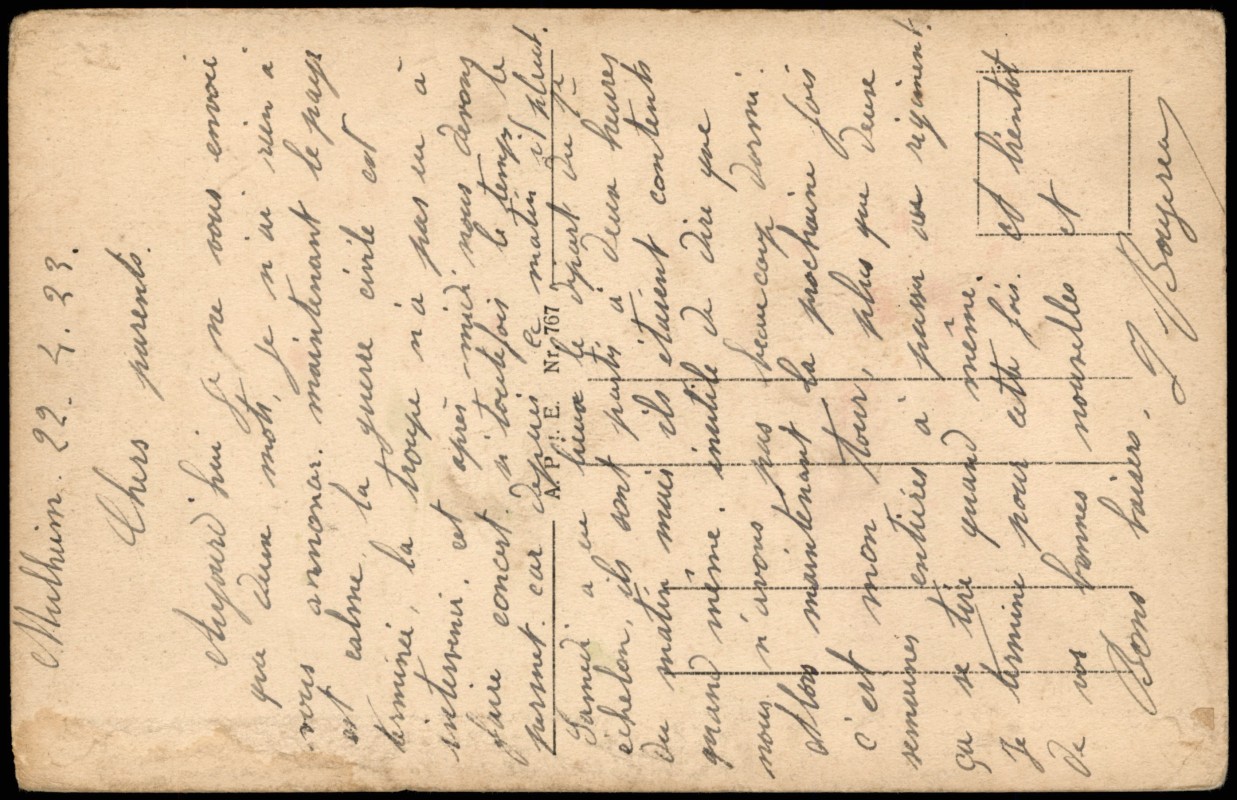 Mulheim. 22. 4. 23.
Chers parents.
Aujourd hui je ne vous envoi
que deux mots, je n'ai rien à
vous annoncer. maintenant le pays
est calme, la guerre civile est
terminée, la troupe n'a pas eu à
intervenir. cet après midi nous devons
faire concert. si toutefois le temps le
permet. car depuis ce matin il pleut.
A. P. E. Nr. 767
Samedi a eu lieux le départ du 1er
échelon, ils sont partis à deux heures
du matin mais ils étaient contents
quand même. inutile de dire que
nous n'avons pas beaucoup dormi.
Alors maintenant la prochaine fois
c'est mon tour, plus que deux
semaines entières à passer au régiment.
ça se tire quand même.
Je termine pour cette fois. et bientôt
de vos bonnes nouvelles et
Bons baisers.